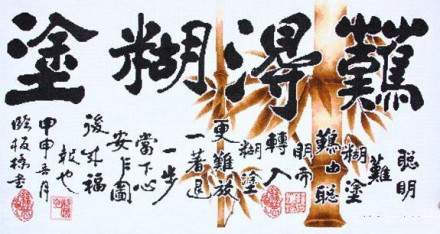 難淂糊塗
聰明
難
糊塗
難由聰
明而
轉入
糊塗
更難放
一著退
一步
當下心
安非圖
後來福
報也
甲申五月
臨板橋書